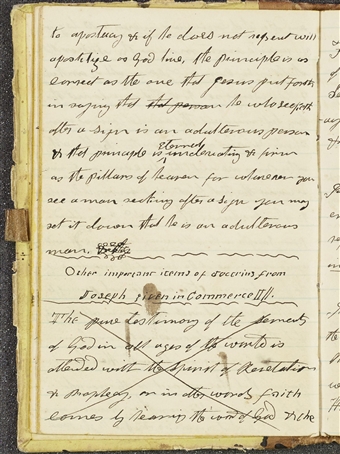 to apostacy & if he does not repent will
apostitize as God live, the principle is as
correct as the one that Jesus put forth
in saying that that person he who seeketh
after a sign is an adulterous person
& that principle is Eternal, undeviating & firm
as the pillars of heaven for whenever you
see a man seeking after a sign you may
set it down that he is an adulterous
man.
Other important items of doctrin from
Joseph given in Commerce Ill.
The pure testimony of the servants
of God in all ages of the world is
attended with the spirit of Revelation
& Prophecy, or in other words faith
comes by hearing the word of God & the